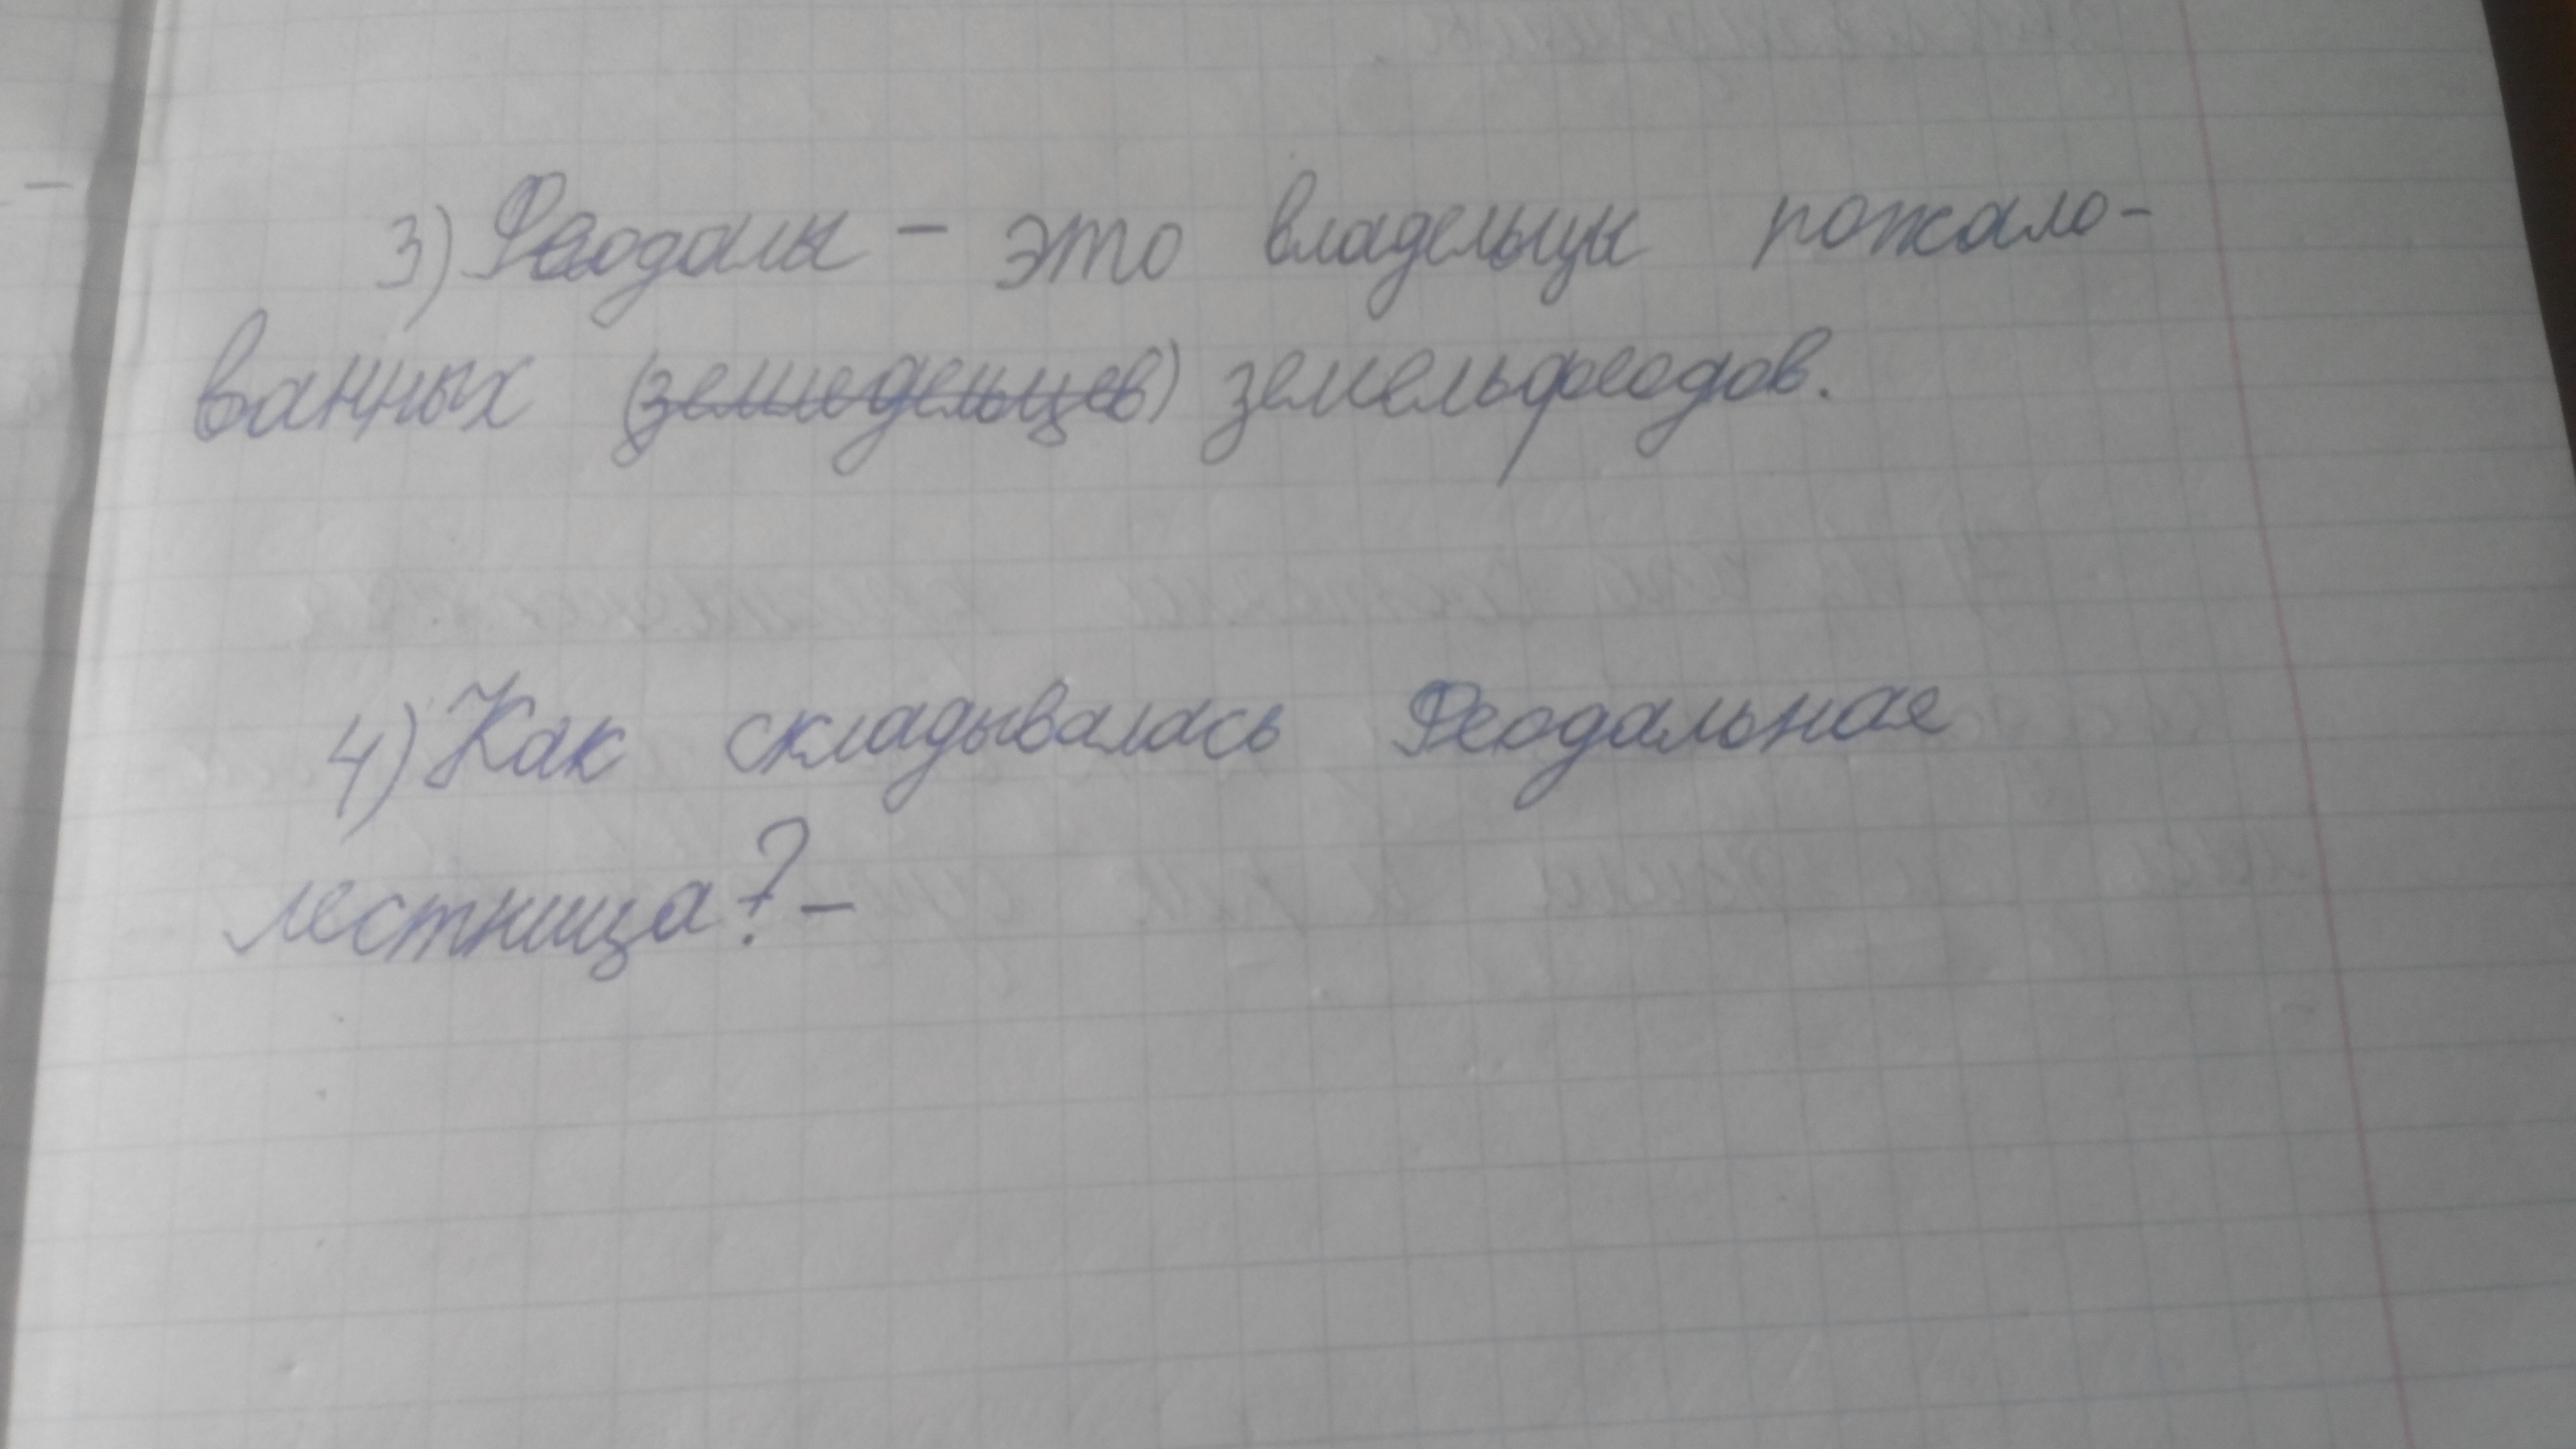 3) Феодалы - это владельцы пожало-
ванных (земледельцев) земельфеодов.
4) Как складывалась Феодальная
лестница? -